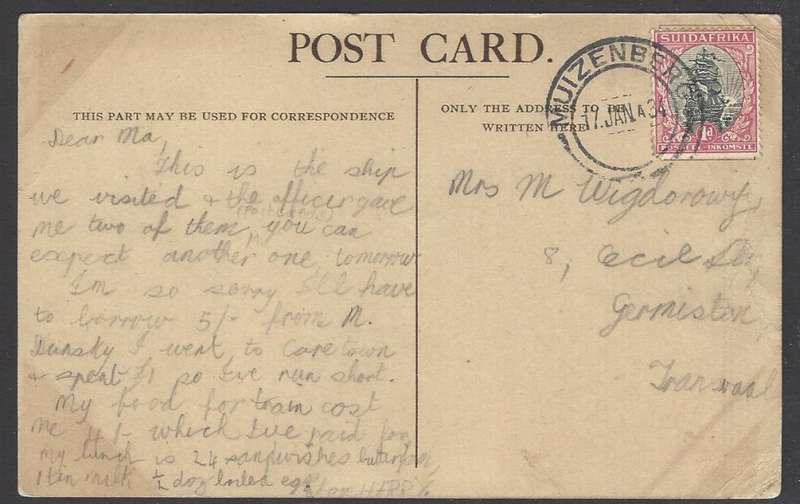 POST CARD.
THIS PART MAY BE USED FOR CORRESPONDENCE
ONLY THE ADDRESS TO BE
WRITTEN HERE
MUIZENBERG
17.JAN.34
SUIDAFRIKA
1d
POSSEEL-INKOMSTE
Dear Ma,
This is the ship
we visited & the officer gave
me two of them (Postcards) you can
expect another one, tomorrow
I'm so sorry I'll have
to borrow 5/- from M.
Dunsky I went to Capetown
& spent £1 so I've run short.
My food for train cost
me 4/- which I've paid for
my lunch is 24 sandwishes
1 tin milk ½ doz boiled egg
HARRY
Mrs M Wigdorowy,
8, Cecil St,
Germiston,
Transvaal